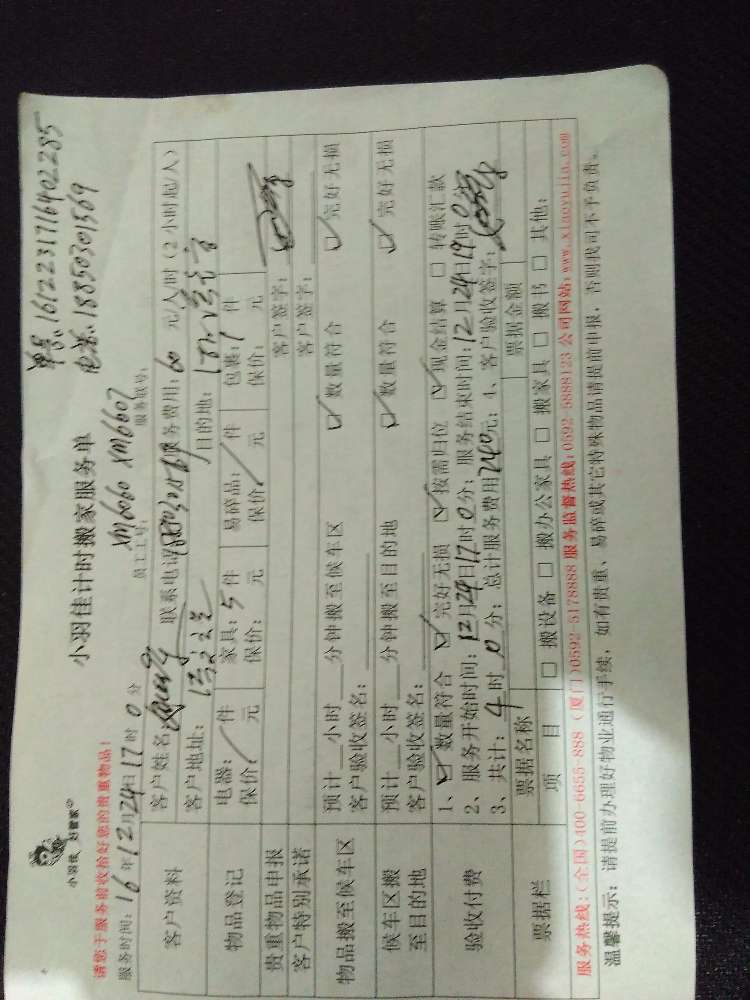 小羽佳 好管家
小羽佳计时搬家服务单
单号:161223171640 2285
电话:18850301569
请您于服务前收拾好您的贵重物品!
XM6060 XM6607
服务时间:16年12月24日17时0分 员工工号: 服务联号:
客户资料
客户姓名: 联系电话 服务费用:60元/人/时(2小时起/人)
客户地址: 目的地:
物品登记
电器:/件 家具:5件 易碎品:/件 包裹:1件
保价:/元 保价: 元 保价:/元 保价: 元
贵重物品申报 客户签字:
客户特别承诺 客户签字:
物品搬至候车区
预计__小时__分钟搬至候车区 ☑数量符合 ☑完好无损
客户验收签名:
候车区搬至目的地
预计__小时__分钟搬至目的地 ☑数量符合 ☑完好无损
客户验收签名:
验收付费
1、☑数量符合 ☑完好无损 ☑按需归位 ☑现金结算 □转账汇款
2、服务开始时间:12月24日17时0分;服务结束时间:12月24日19时0分
3、共计:4时0分;总计服务费用240元;4、客户验收签字:
票据栏
票据名称 票据金额
项 目 □搬设备 □搬办公家具 □搬家具 □搬书 □其他:
服务热线:(全国)400-6655-888 (厦门)0592-5178888 服务监督热线:0592-5888123 公司网站:www.xiaoyujia.com
温馨提示:请提前办理好物业通行手续,如有贵重、易碎或其它特殊物品请提前申报,否则我司不予负责。